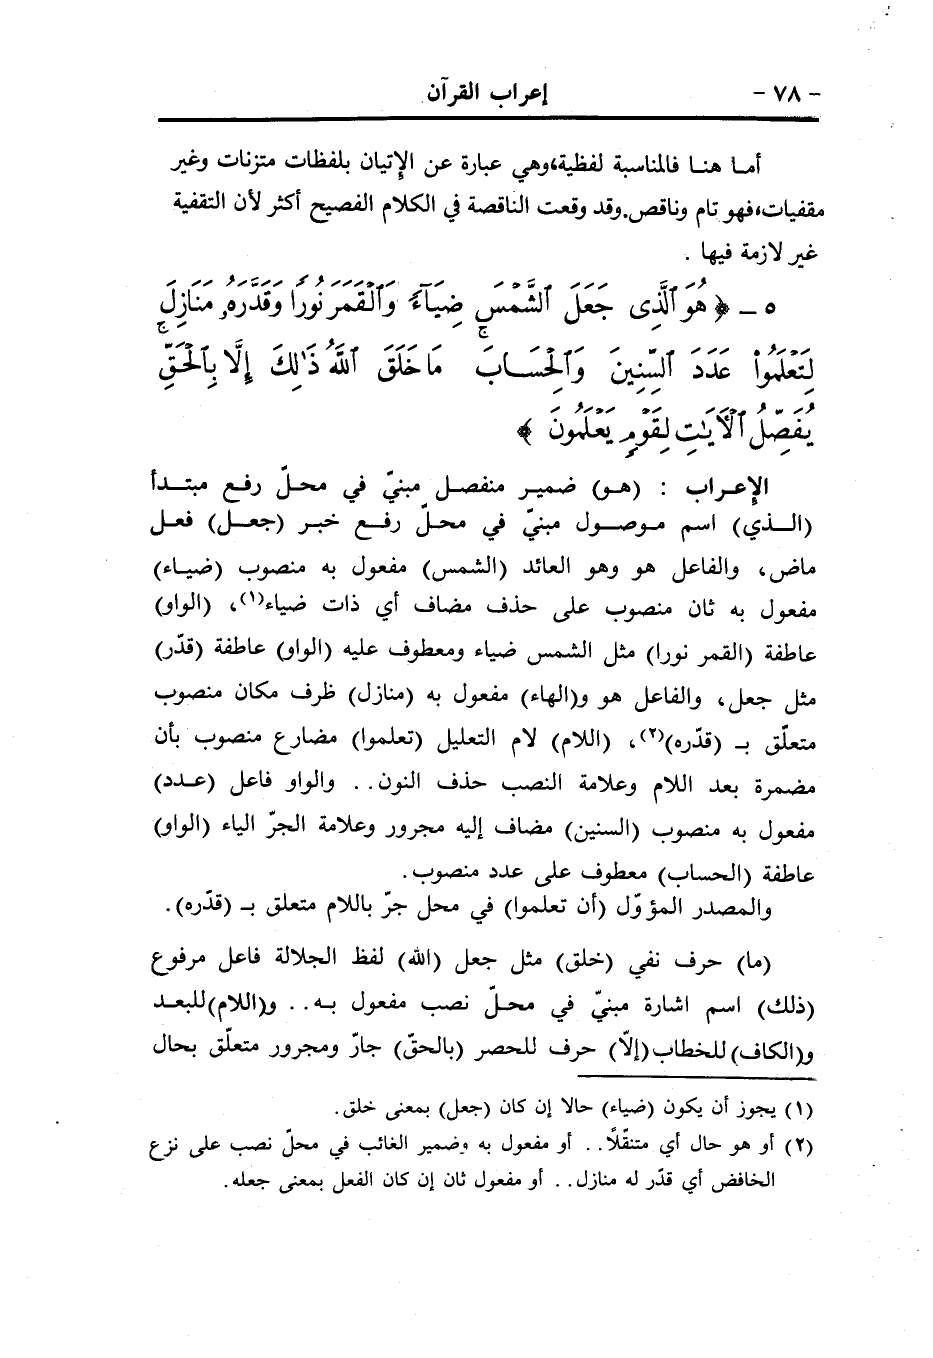 - ٧٨ - إعراب القرآن
أما هنا فالمناسبة لفظية،وهي عبارة عن الإتيان بلفظات متزنات وغير
مقفيات،فهو تام وناقص.وقد وقعت الناقصة في الكلام الفصيح أكثر لأن التقفية
غير لازمة فيها .
٥ - ﴿ هُوَ ٱلَّذِى جَعَلَ ٱلشَّمْسَ ضِيَآءً وَٱلْقَمَرَ نُورًا وَقَدَّرَهُۥ مَنَازِلَ
لِتَعْلَمُوا۟ عَدَدَ ٱلسِّنِينَ وَٱلْحِسَابَ ۚ مَا خَلَقَ ٱللَّهُ ذَٰلِكَ إِلَّا بِٱلْحَقِّ ۚ
يُفَصِّلُ ٱلْأَيَٰتِ لِقَوْمٍ يَعْلَمُونَ ﴾
الإعراب : (هو) ضمير منفصل مبنيّ في محلّ رفع مبتدأ
(الذي) اسم موصول مبنيّ في محلّ رفع خبر (جعل) فعل
ماض، والفاعل هو وهو العائد (الشمس) مفعول به منصوب (ضياء)
مفعول به ثان منصوب على حذف مضاف أي ذات ضياء(١)، (الواو)
عاطفة (القمر نورا) مثل الشمس ضياء ومعطوف عليه (الواو) عاطفة (قدّر)
مثل جعل، والفاعل هو و(الهاء) مفعول به (منازل) ظرف مكان منصوب
متعلّق بـ (قدّره)(٢)، (اللام) لام التعليل (تعلموا) مضارع منصوب بأن
مضمرة بعد اللام وعلامة النصب حذف النون.. والواو فاعل (عدد)
مفعول به منصوب (السنين) مضاف إليه مجرور وعلامة الجرّ الياء (الواو)
عاطفة (الحساب) معطوف على عدد منصوب.
والمصدر المؤوّل (أن تعلموا) في محل جرّ باللام متعلق بـ (قدّره).
(ما) حرف نفي (خلق) مثل جعل (الله) لفظ الجلالة فاعل مرفوع
(ذلك) اسم اشارة مبنيّ في محلّ نصب مفعول به.. و(اللام)للبعد
و(الكاف)للخطاب(إلّا) حرف للحصر (بالحقّ) جارّ ومجرور متعلّق بحال
(١) يجوز أن يكون (ضياء) حالا إن كان (جعل) بمعنى خلق.
(٢) أو هو حال أي متنقّلاً.. أو مفعول به وضمير الغائب في محلّ نصب على نزع
الخافض أي قدّر له منازل.. أو مفعول ثان إن كان الفعل بمعنى جعله.